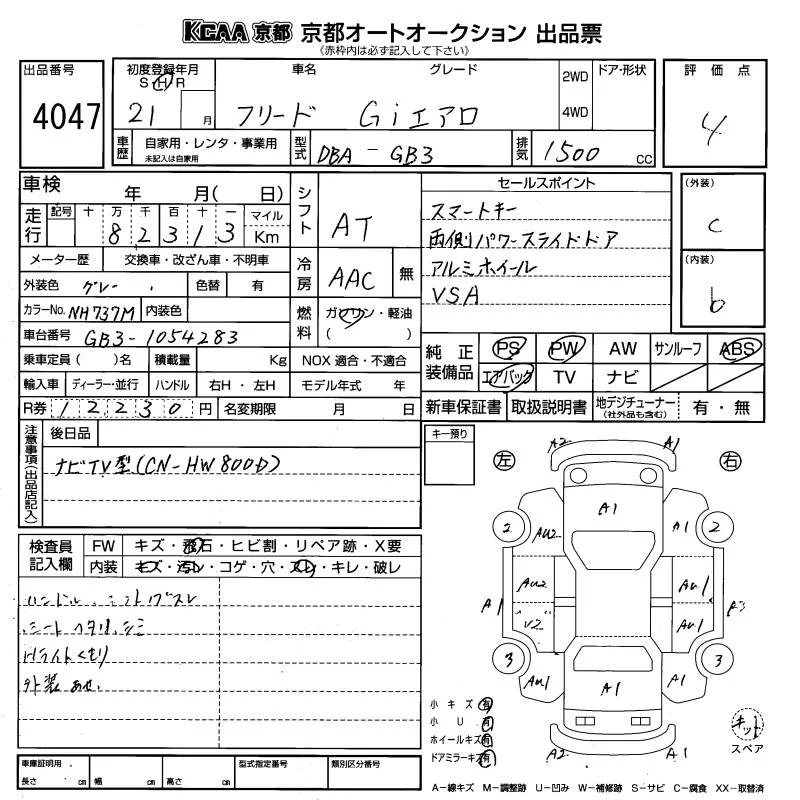 KCAA 京都 京都オートオークション 出品票
《赤枠内は必ず記入して下さい》
出品番号
4047
初度登録年月
S H R
21 月
車名
フリード
グレード
Giエアロ
2WD
4WD
ドア・形状
評価点
4
車歴
自家用・レンタ・事業用
未記入は自家用
型式
DBA-GB3
排気
1500 CC
車検 年 月( 日)
走行
記号 十 万 千 百 十 一
8 2 3 1 3
マイル
Km
メーター歴 交換車・改ざん車・不明車
外装色 グレー
色替 有
カラーNo. NH737M
内装色
車台番号 GB3-1054283
乗車定員( )名 積載量 Kg
輸入車 ディーラー・並行 ハンドル 右H・左H
R券 12230円
名変期限 月 日
シフト AT
冷房 AAC 無
燃料 ガソリン・軽油
( )
NOX 適合・不適合
モデル年式 年
セールスポイント
スマートキー
両側パワースライドドア
アルミホイール
VSA
(外装)
C
(内装)
b
純正装備品
PS PW AW サンルーフ ABS
エアバック TV ナビ
新車保証書 取扱説明書 地デジチューナー
(社外品も含む)
有・無
注意事項(出品店記入)
後日品
ナビTV型(CN-HW800D)
キー預り
左
右
検査員記入欄
FW キズ・飛石・ヒビ割・リペア跡・X要
内装 キズ・汚レ・コゲ・穴・スレ・キレ・破レ
ハンドル、シフトノブスレ
シートヘタリ、シミ
Hライトくもり
外装あせ
A2 A1
A1
2 AU2 A1 2
AU2 AU1
A1 A3
V2 AU1
3 AU1 A1 A1 3
A2 A1
小キズ 有
小U 有
ホイールキズ 有
ドアミラーキズ 有
キット
スペア
A-線キズ M-調整跡 U-凹み W-補修跡 S-サビ C-腐食 XX-取替済
車庫証明用
長さ cm 幅 cm 高さ cm
型式指定番号
類別区分番号